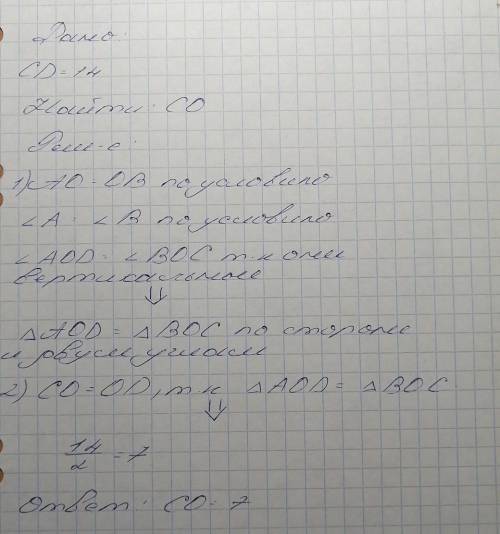 Дано:
CD=14
Найти: CO
Реш-е:
1) AO=OB по условию
∠A=∠B по условию
∠AOD=∠BOC т.к они
вертикальные
⇓
△AOD=△BOC по стороне
и двум углам
2) CO=OD, т к △AOD=△BOC
⇓
14/2=7
Ответ: CO=7